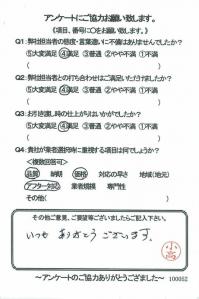 アンケートにご協力お願い致します。
《項目、番号に〇をお願い致します。》
Q1:弊社担当者の態度・言葉遣いに不備はありませんでしたか?
⑤大変満足 ④満足 ③普通 ②やや不満 ①不満
( )
Q2:弊社担当者との打ち合わせはご満足いただけましたか?
⑤大変満足 ④満足 ③普通 ②やや不満 ①不満
( )
Q3:お引き渡し時の仕上がりはいかがでしたか?
⑤大変満足 ④満足 ③普通 ②やや不満 ①不満
( )
Q4:貴社が業者選択時に重視する項目は何でしょうか?
<複数回答可>
品質 納期 価格 対応の早さ 地域(地元)
アフター対応 業者規模 専門性
その他( )
その他ご意見、ご要望等ございましたらご記入下さい。
いつも ありがとう ございます。
小高
~アンケートのご協力ありがとうござました~ 100052